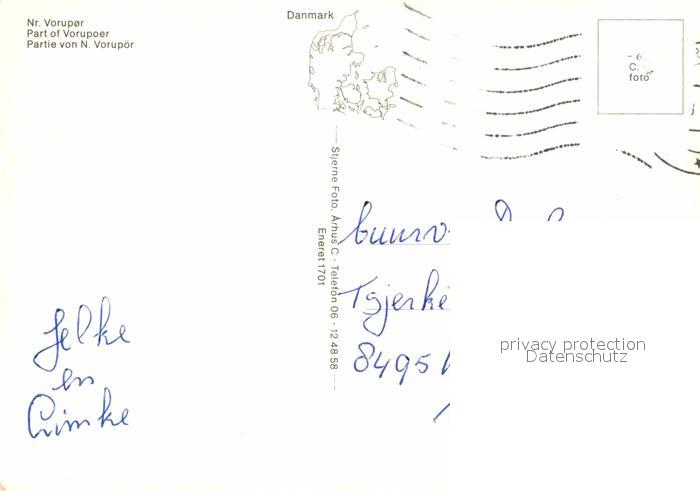 Nr. Vorupør
Part of Vorupoer
Partie von N. Vorupör
Danmark
foto
Stjerne Foto, Århus C - Telefon 06 - 12 48 58
Eneret 1701
Jelke
en
Tsjerke
8495
privacy protection
Datenschutz